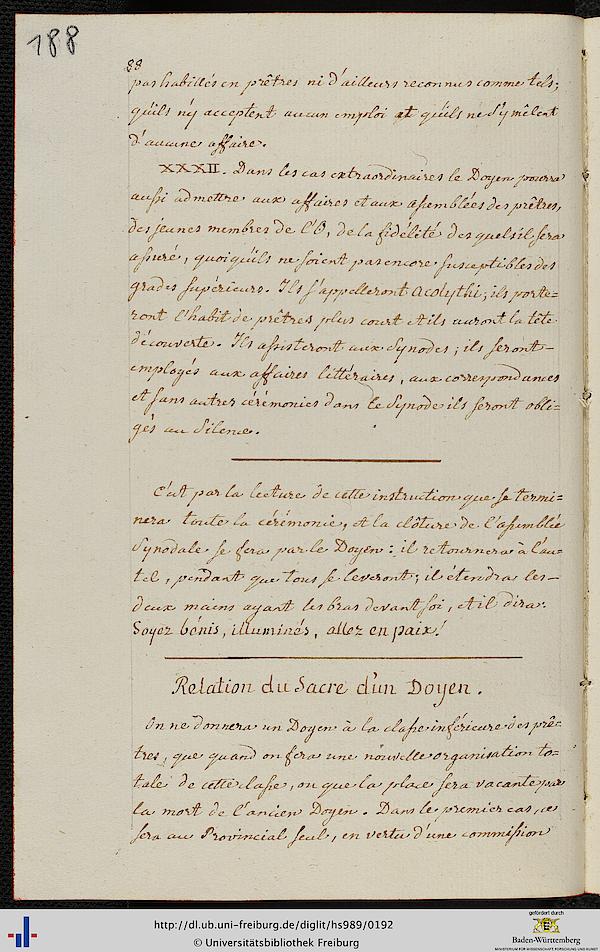 188
88
pas habillés en prêtres ni d'ailleurs reconnus comme tels;
qu'ils n'y acceptent aucun emploi et qu'ils ne s'y mêlent
d'aucune affaire.
XXXII. Dans les cas extraordinaires le Doyen pourra
aussi admettre aux affaires et aux assemblées des prêtres,
des jeunes membres de l'O, de la fidélité des quels il sera
assuré, quoiqu'ils ne soient pas encore susceptibles des
grades supérieurs. Ils s'appelleront Acolythi; ils porte=
ront l'habit de prêtres plus court et ils auront la tête
découverte. Ils assisteront aux Synodes; ils seront
employés aux affaires littéraires, aux correspondances
et sans autres cérémonies dans le Synode ils seront obli=
gés au Silence.
C'est par la lecture de cette instruction que se termi=
nera toute la cérémonie, et la clôture de l'assemblée
Synodale se fera par le Doyen: il retournera à l'au=
tel, pendant que tous se leveront; il étendra les
deux mains ayant les bras devant soi, et il dira:
Soyez bénis, illuminés, allez en paix!
Relation du Sacre d'un Doyen.
On ne donnera un Doyen à la classe inférieure des prê=
tres, que quand on fera une nouvelle organisation to=
tale de cette classe, ou que la place sera vacante par
la mort de l'ancien Doyen. Dans le premier cas, ce
sera au Provincial seul, en vertu d'une commission
http://dl.ub.uni-freiburg.de/diglit/hs989/0192
© Universitätsbibliothek Freiburg
gefördert durch
Baden-Württemberg
MINISTERIUM FÜR WISSENSCHAFT, FORSCHUNG UND KUNST